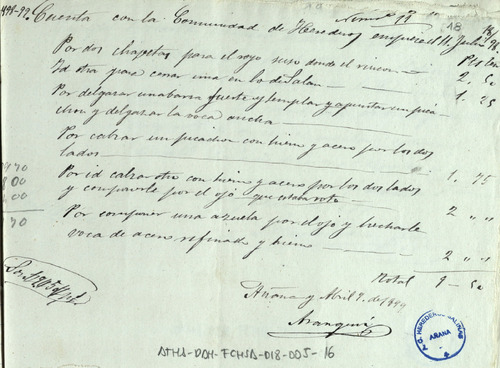 1898-99. Cuenta con la Comunidad de Herederos empieza 14 Julio 98
Por dos chapetas para el royo suso donde el rincon 2 50
Id otra para cerrar una en lo de Salan 1 75
Por delgazar una barra fuerte y templar y apuntar un picachon y delgazar la voca ancha
Por calzar un picachon con hierro y acero por los dos
lados 1 75
Por id calzar otro con hierro y acero por los dos lados
y componerle por el ojo que estaba roto 2 " "
Por componer una azuela por el ojo y hecharle
voca de acero refinado y hierro 2 " "
Total 9 - 50
Añana y Abril 9. de 1899
Aranguiz
ATHA-DAH-FCHSA-018-005-16
T. G. HEREDEROS SALINAS
AÑANA